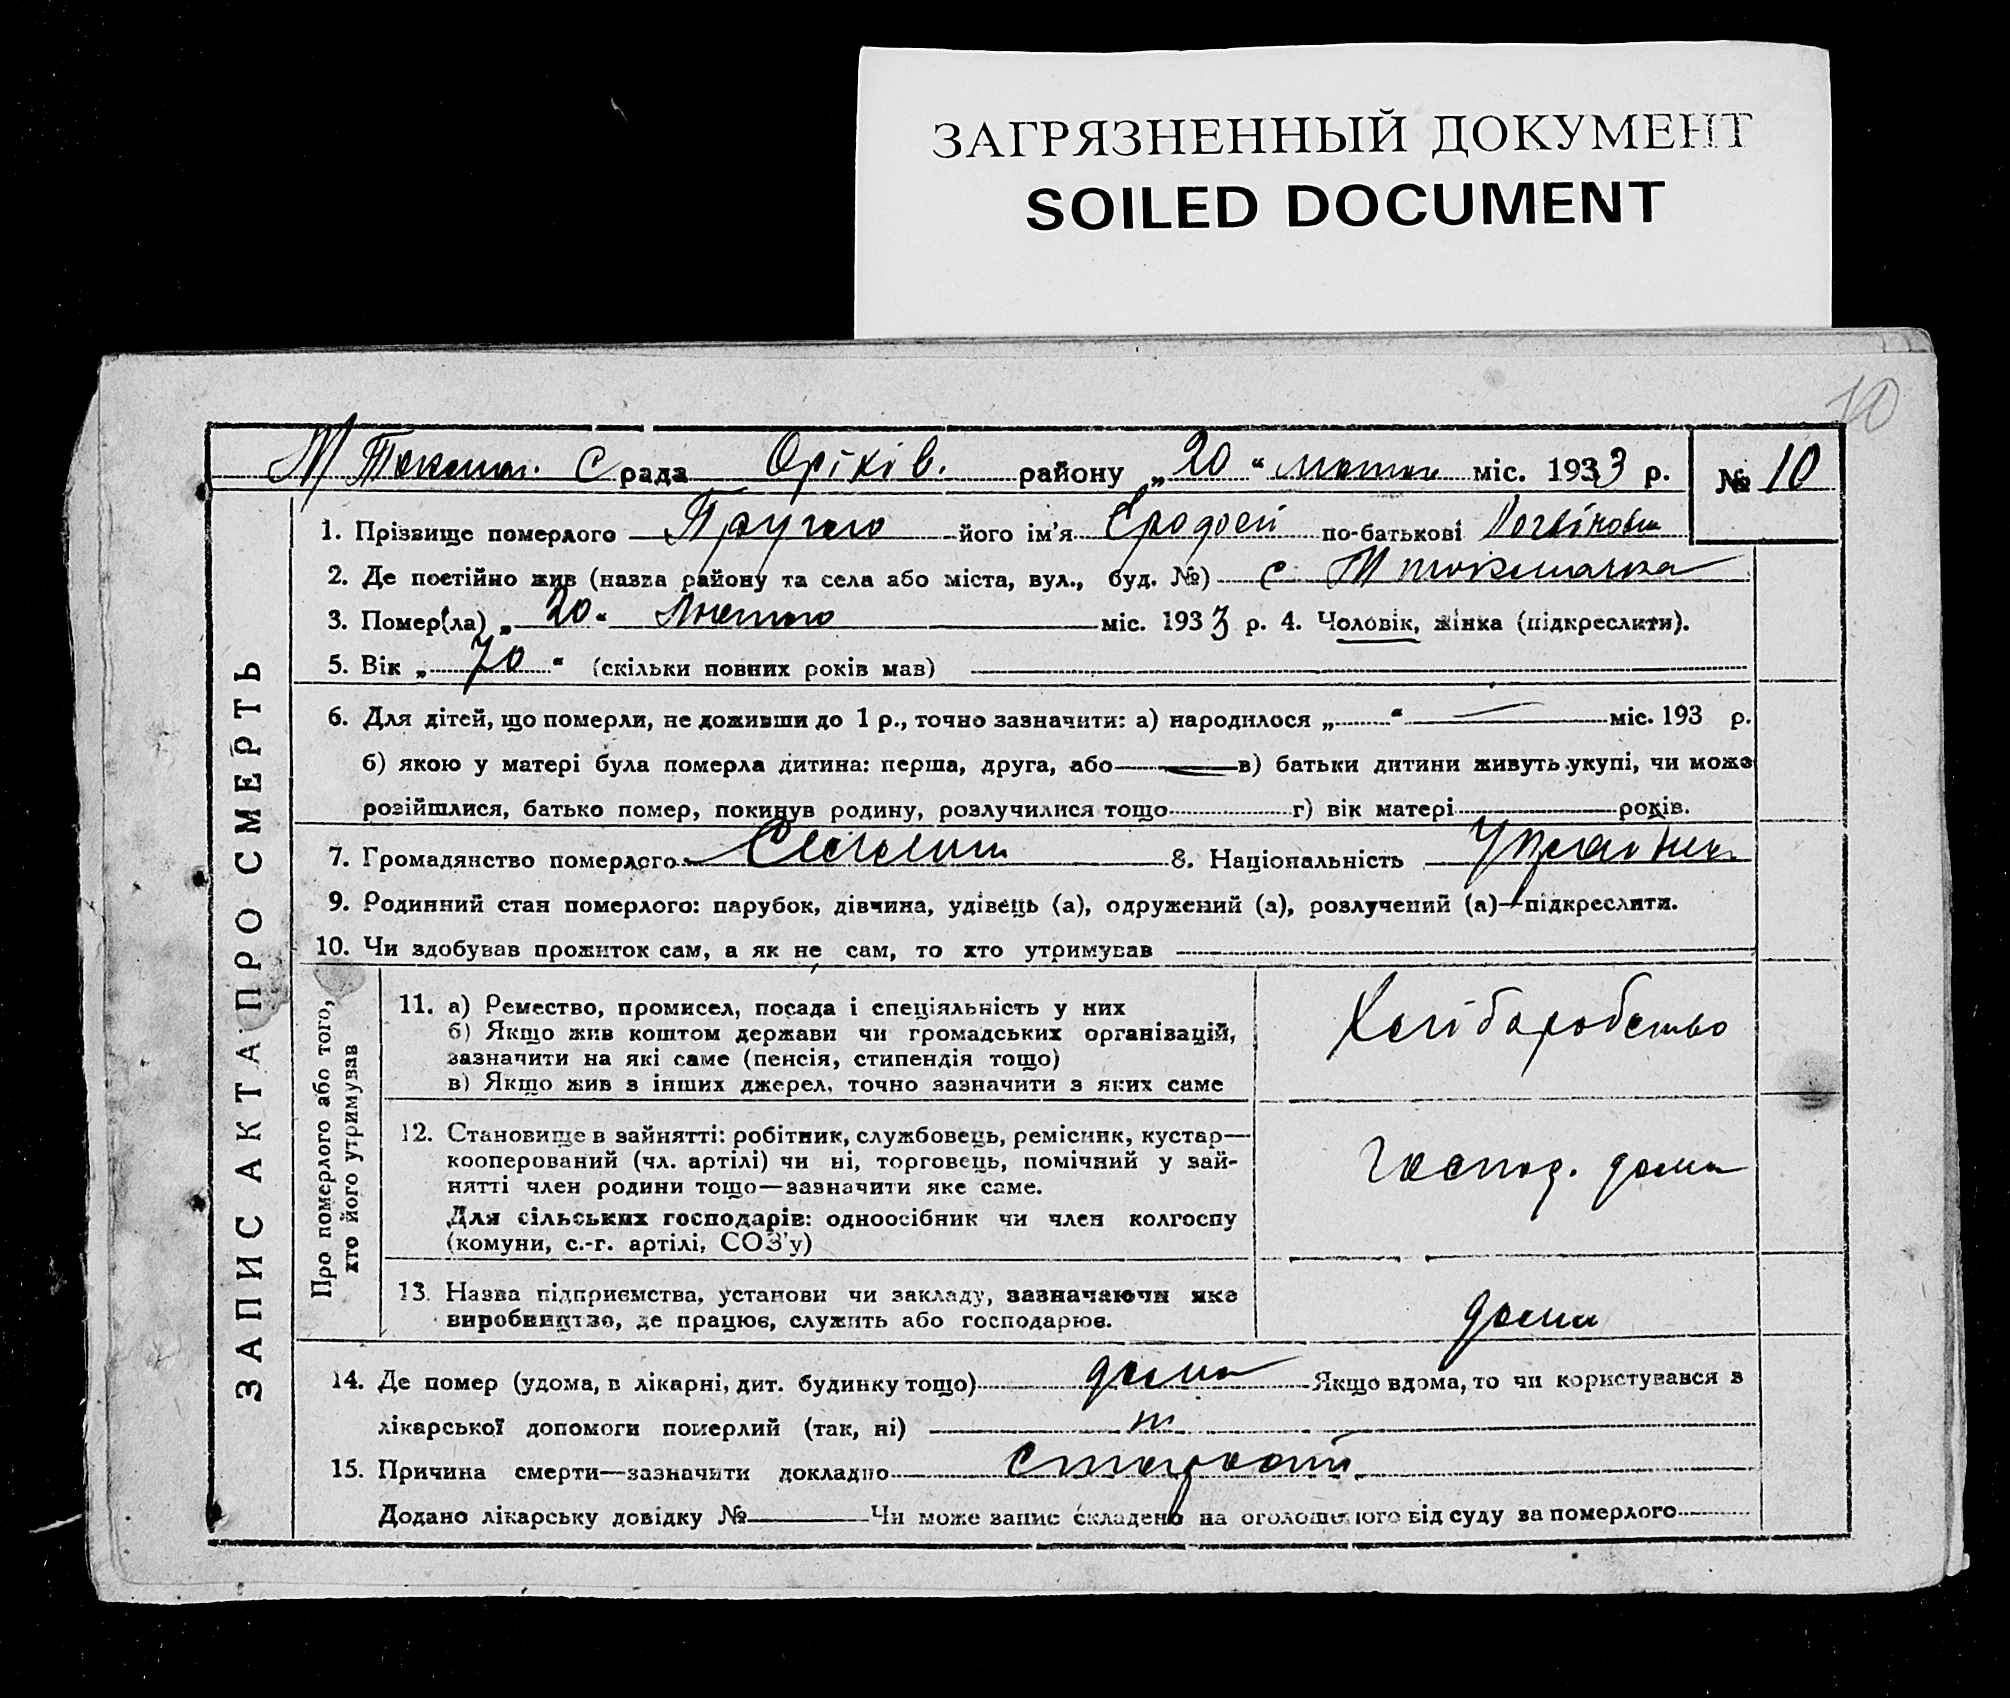 ЗАГРЯЗНЕННЫЙ ДОКУМЕНТ
SOILED DOCUMENT
10
М Токмач. С рада Оріхів. району „20“ лютого міс. 1933 р. № 10
ЗАПИС АКТА ПРО СМЕРТЬ
1. Прізвище померлого його ім'я по-батькові
2. Де постійно жив (назва району та села або міста, вул., буд. №) с М токмачка
3. Помер(ла) „20“ Лютого міс. 1933 р. 4. Чоловік, жінка (підкреслити).
5. Вік „70“ (скільки повних років мав)
6. Для дітей, що померли, не доживши до 1 р., точно зазначити: а) народилося „ “ міс. 193 р.
б) якою у матері була померла дитина: перша, друга, або в) батьки дитини живуть укупі, чи може
розійшлися, батько помер, покинув родину, розлучилися тощо г) вік матері років.
7. Громадянство померлого 8. Національність
9. Родинний стан померлого: парубок, дівчина, удівець (а), одружений (а), розлучений (а)—підкреслити.
10. Чи здобував прожиток сам, а як не сам, то хто утримував
Про померлого або того,
хто його утримував
11. а) Ремество, промисел, посада і спеціяльність у них
б) Якщо жив коштом держави чи громадських організацій,
зазначити на які саме (пенсія, стипендія тощо)
в) Якщо жив з інших джерел, точно зазначити з яких саме
Хліборобство
12. Становище в зайнятті: робітник, службовець, ремісник, кустар—
кооперований (чл. артілі) чи ні, торговець, помічний у зай-
нятті член родини тощо—зазначити яке саме.
Для сільських господарів: одноосібник чи член колгоспу
(комуни, с.-г. артілі, СОЗ'у)
Господ. дома
13. Назва підприємства, установи чи закладу, зазначаючи яке
виробництво, де працює, служить або господарює.
дома
14. Де помер (удома, в лікарні, дит. будинку тощо) дома Якщо вдома, то чи користувався з
лікарської допомоги померлий (так, ні) ні
15. Причина смерти—зазначити докладно
Додано лікарську довідку № Чи може запис складено на оголошеного від суду за померлого